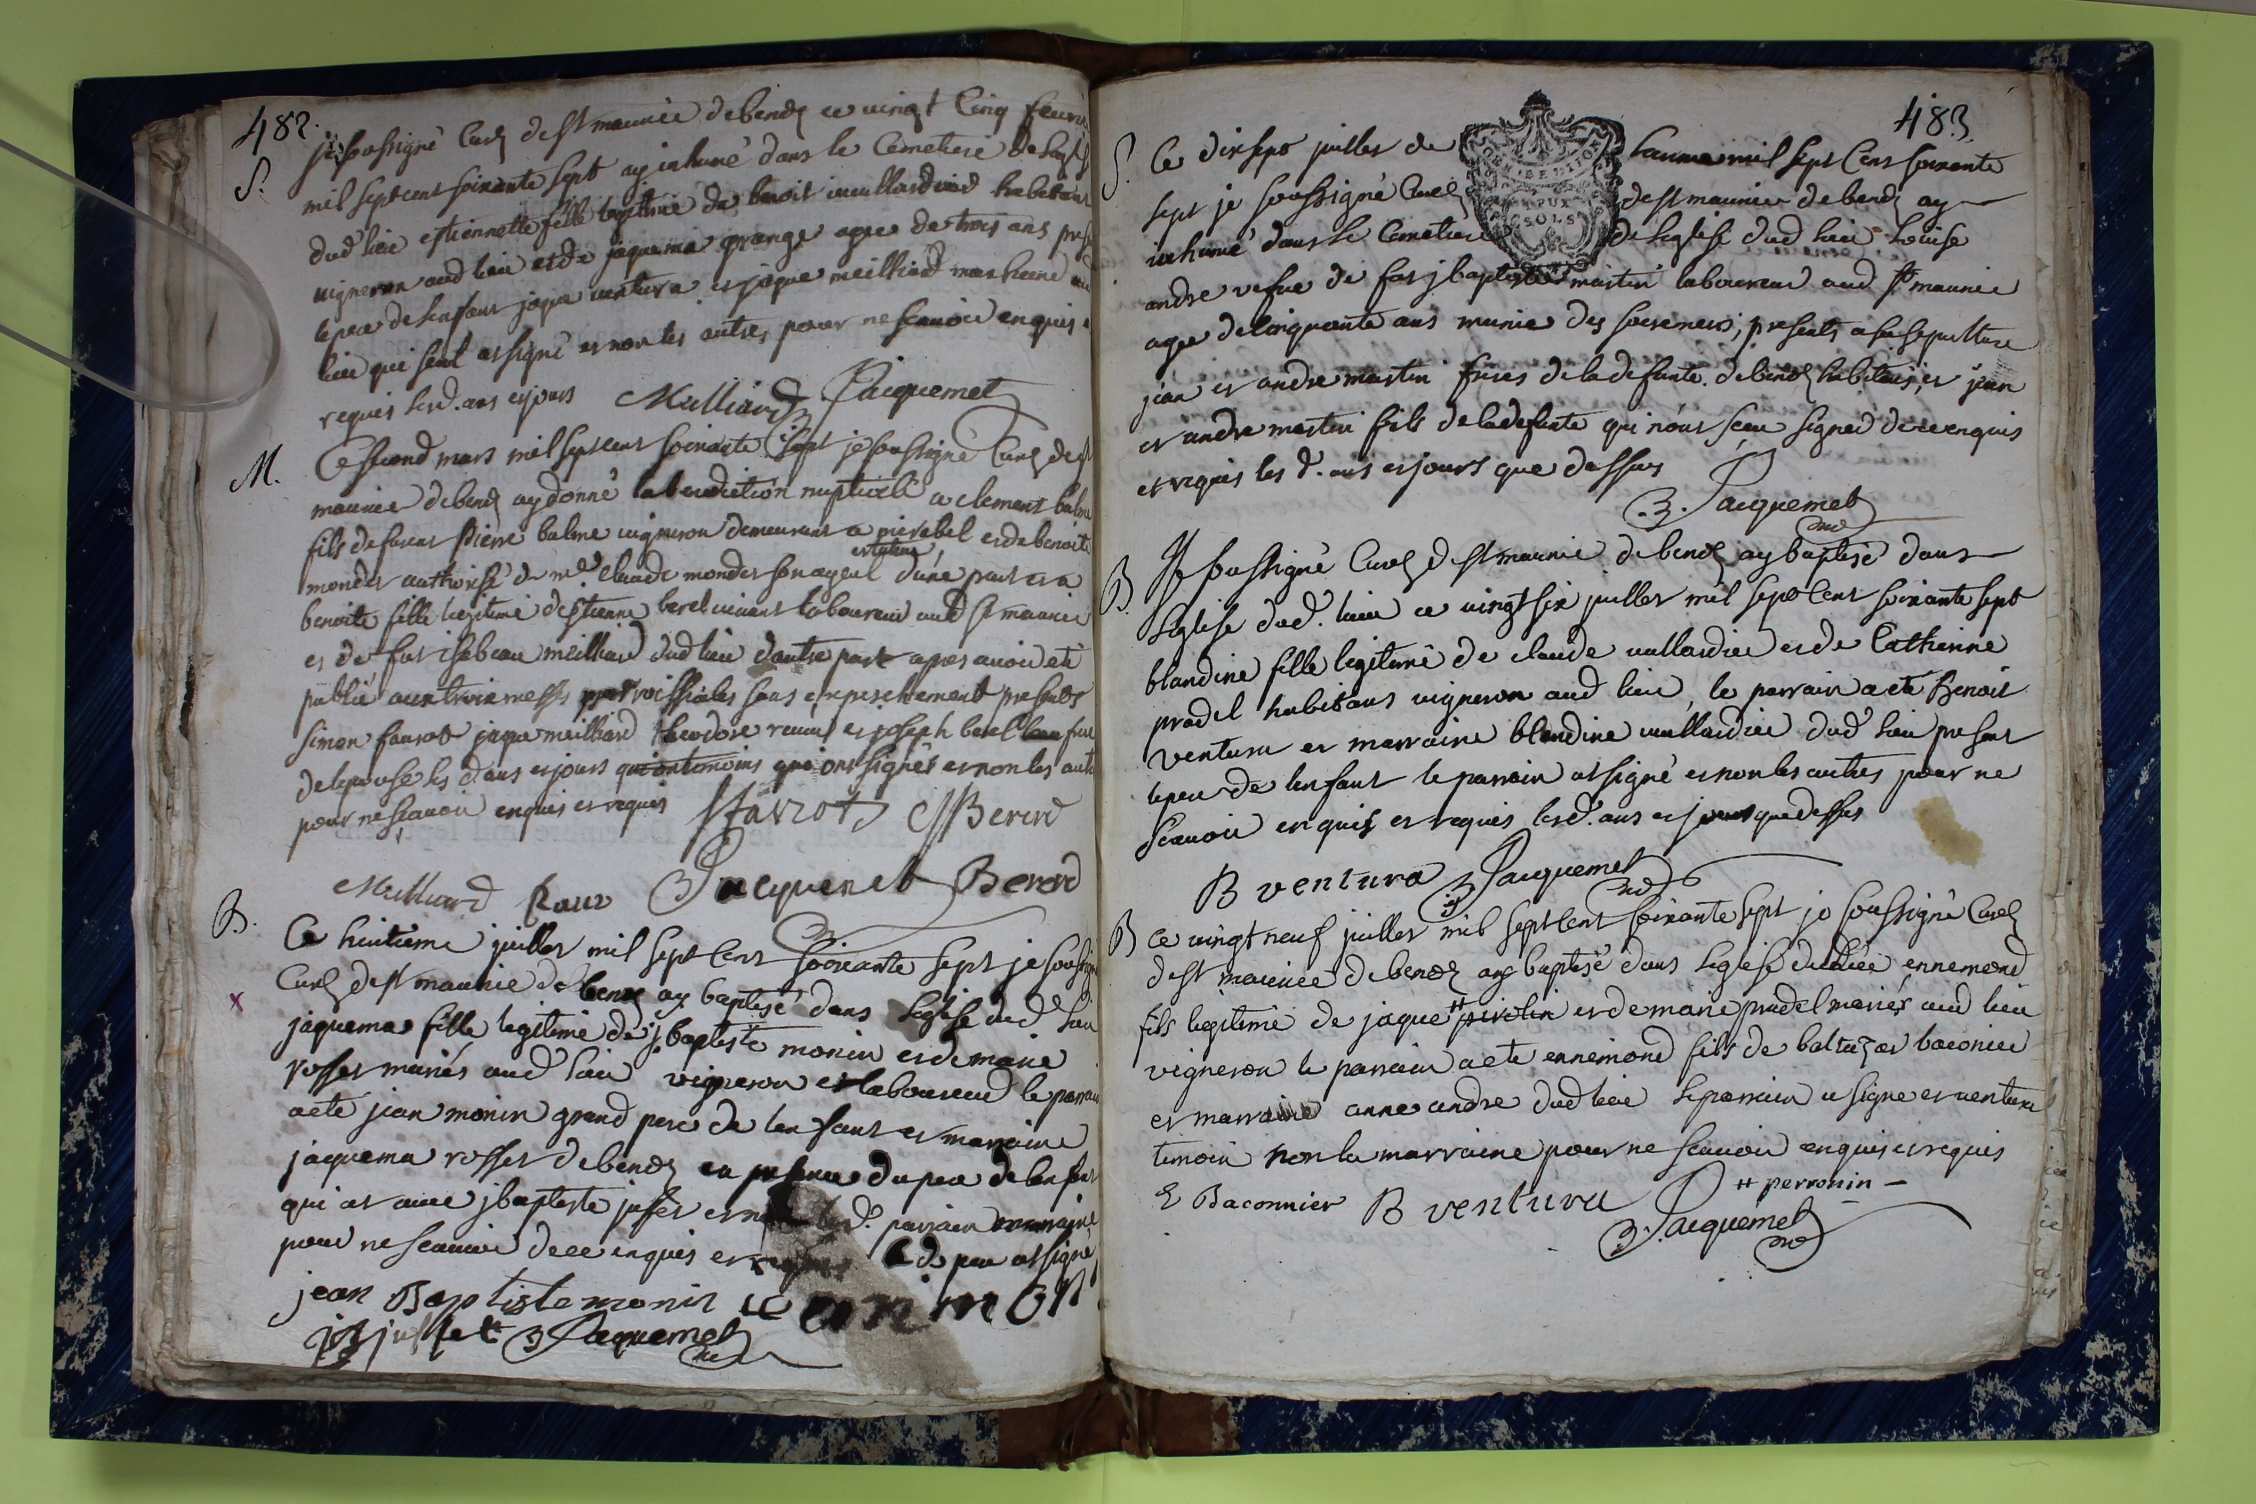 482.
S. je soussigné Curé de st maurice de beinoz ce vingt Cinq fevrier
mil sept cent soixante sept ay inhumé dans le Cemetiere de leglise
dud lieu estiennette fille legitime de benoit vuillardier habitant
vigneron aud lieu et de jaquema grange agee de trois ans present
le pere de lenfant jaque ventura et jaque meilliard marchand aud
lieu qui seul at signé et non les autres pour ne scavoir enquis et
requis lesd. ans et jours Mulliard Jacquemet
M. Ce second mars mil sept cent soixante sept je soussigné Curé de st
maurice de beinoz ay donné la benediction nuptiale a clement balme
fils de feu Pierre balme vigneron demeurant a mirabel et de benoite
mondet authorisé de me claude mondet son ayeul d'une part et a
benoite fille legitime destienne berel vivant laboureur aud st maurice
et de fut isabeau meilliard dud lieu d'autre part apres avoir eté
publié aux trois messes parroissiales sans empeschement presents
simon favrot jaque meilliard theodore et joseph berel frere
de lepouse les d ans et jours qui ont signés et non les autres
pour ne scavoir enquis et requis SFavrot JBererd
Mulliard Jacquemet Bererd
B. Ce huitieme juillet mil sept Cent soixante sept je soussigné
Curé de st maurice de beinoz ay baptisé dans leglise dud. lieu
x
jaquema fille legitime de j baptiste monin et de marie
rosset mariés aud lieu vigneron et laboureur le parrain
a eté jean monin grand pere de lenfant et marraine
jaquema rosset de beinoz en presence du pere de lenfant
qui at avec j baptiste juset et non lesd. parrain marraine
pour ne scavoir de ce enquis et requis le d. pere at signé
jean Baptiste monin monin
jB jusset Jacquemet
483
S. Ce dix sept juillet de lannee mil sept Cent soixante
GN. DE LYON
DEUX
SOLS
sept je soussigné Curé de st maurice de beinoz ay
inhumé dans le Cemetiere de leglise dud lieu Louise
andre vefve de feu j baptiste martin laboureur aud st maurice
agee de Cinquante ans munie des sacremens; presents a sa sepulture
jean et andre martin freres de la defunte de beinoz habitans, et jean
et andre martin fils de la defunte qui n'ont sçeu signer de ce enquis
et requis les d. ans et jours que dessus
Jacquemet
B. Je soussigné Curé de st maurice de beinoz ay baptisé dans
leglise dud. lieu ce vingt six juillet mil sept Cent soixante sept
blandine fille legitime de claude vuillardier et de Catherine
pradel habitans vigneron aud lieu, le parrain a eté Benoit
ventura et marraine blandine vuillardier dud lieu present
le pere de lenfant le parrain at signé et non les autres pour ne
scavoir enquis et requis lesd. ans et jours que dessus
B ventura Jacquemet
B ce vingt neuf juillet mil sept Cent soixante sept je soussigné Curé
de st maurice de beinoz ay baptisé dans leglise dud lieu ennemond
fils legitime de jaque # pirolin et de marie pradel mariés aud lieu
vigneron le parrain a eté ennemond fils de baltazar baconier
et marraine anne andre dud lieu le parrain a signé et ventura
temoin non la marraine pour ne scavoir enquis et requis
E Baconnier B ventura # perronin -
Jacquemet